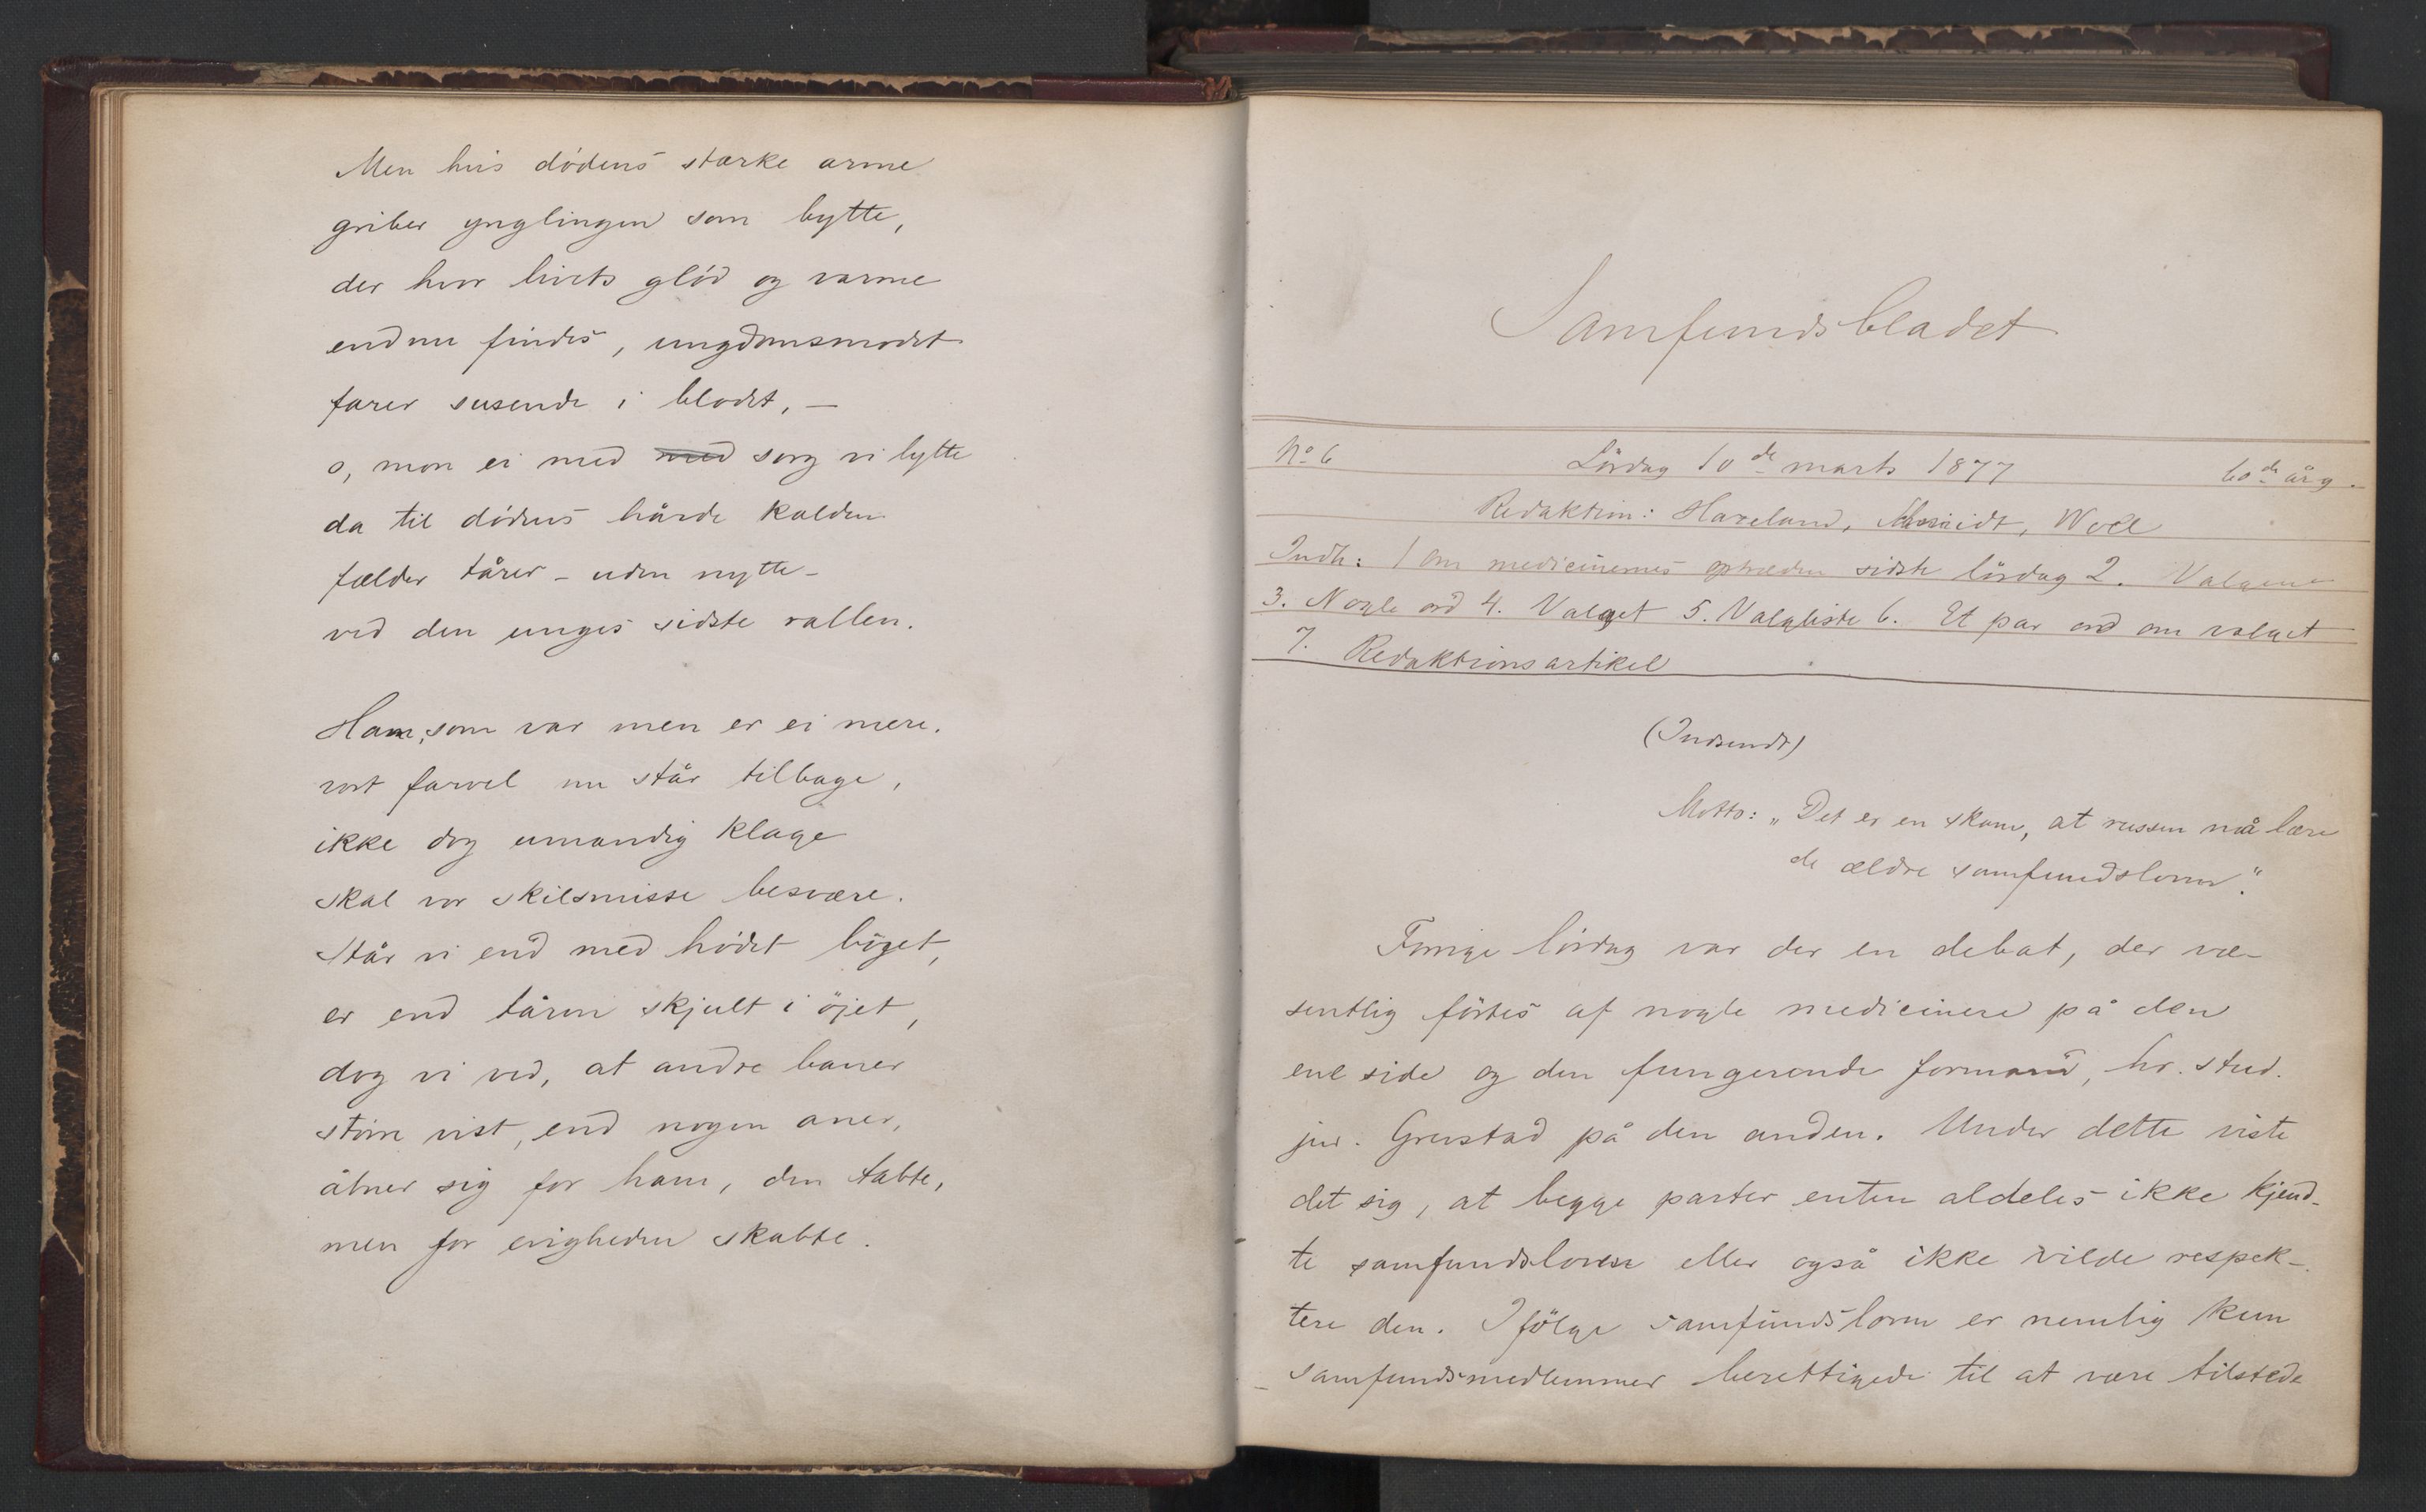 Men hvis dødens stærke arme
griber ynglingen som bytte,
der hvor livets glöd og varme
endnu findes, ungdomsmodet
farer susende i blodet, —
o, mon ei med med sorg vi lytte
da til dödens hårde kalden
fælder tårer – uden nytte –
ved den unges sidste rallen.
Ham, som var men er ei mere.
vort farvel nu står tilbage,
ikke dog umandig klage
skal vor skilsmisse besvære.
Står vi end med hödet böget,
er end tåren skjult i öjet,
dog vi ved, at andre baner
störe vist, end nogen aner,
åbner sig for ham, den tabte,
men for evigheden skabte.
Samfundsbladet
No 6 Lördag 10de marts 1877 60de årg.
Redaktion: Haveland, Woll
Indh: 1 Om medicinernes optræden sidste lördag 2. Valgene
3. Nogle ord 4. Valget 5. Valgliste 6. Et par ord om valget
7. Redaktionsartikel
(Indsendt)
Motto: „Det er en skam, at russen må lære
de ældre samfundsloven".
Forrige lördag var der en debat, der væ-
sentlig förtes af nogle medicinere på den
ene side og den fungerende formand, hr. stud.
jur. Grevstad på den anden. Under dette viste
det sig, at begge parter enten aldeles ikke kjend-
te samfundsloven eller også ikke vilde respek-
tere den. Ifölge samfundsloven er nemlig kun
samfundsmedlemmer berettigede til at være tilstede